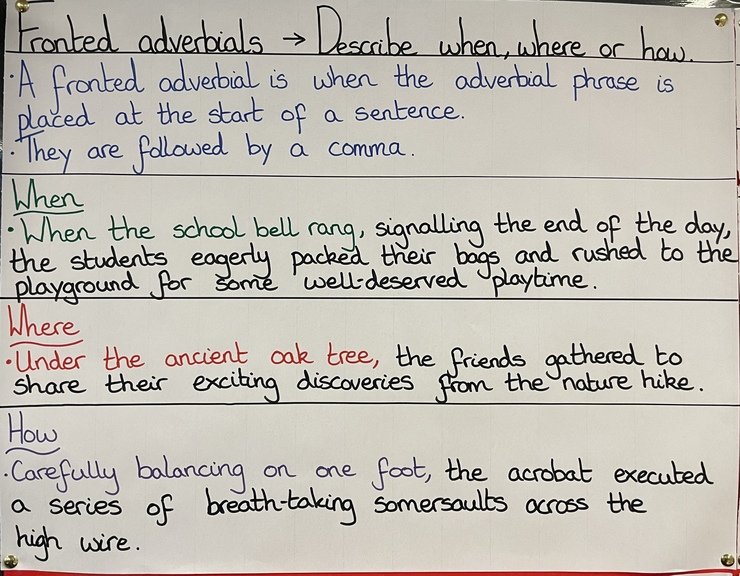 Fronted adverbials → Describe when, where or how.
· A fronted adverbial is when the adverbial phrase is
placed at the start of a sentence.
· They are followed by a comma.
When
· When the school bell rang, signalling the end of the day,
the students eagerly packed their bags and rushed to the
playground for some well-deserved playtime.
Where
· Under the ancient oak tree, the friends gathered to
share their exciting discoveries from the nature hike.
How
· Carefully balancing on one foot, the acrobat executed
a series of breath-taking somersaults across the
high wire.